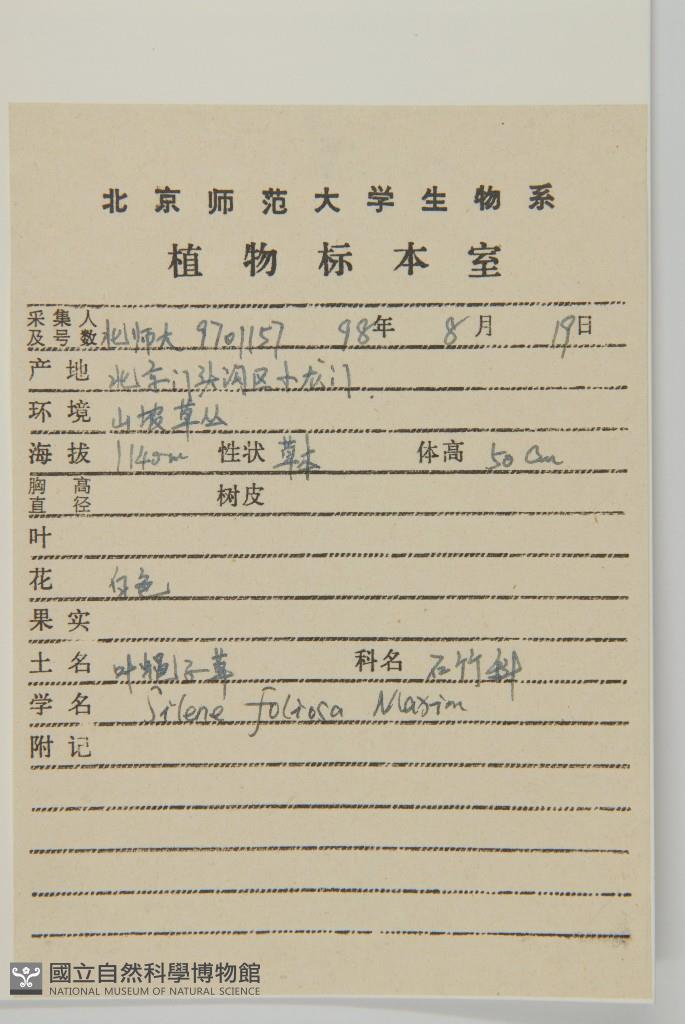 北京师范大学生物系
植物标本室
采集人及号数 北师大 9701157 98年 8月 19日
产地 北京门头沟区小龙门
环境 山坡草丛
海拔 1140m 性状 草本 体高 50 cm
胸高直径 树皮
叶
花 白色
果实
土名 叶蝇子草 科名 石竹科
学名 Silene foliosa Maxim
附记
國立自然科學博物館
NATIONAL MUSEUM OF NATURAL SCIENCE